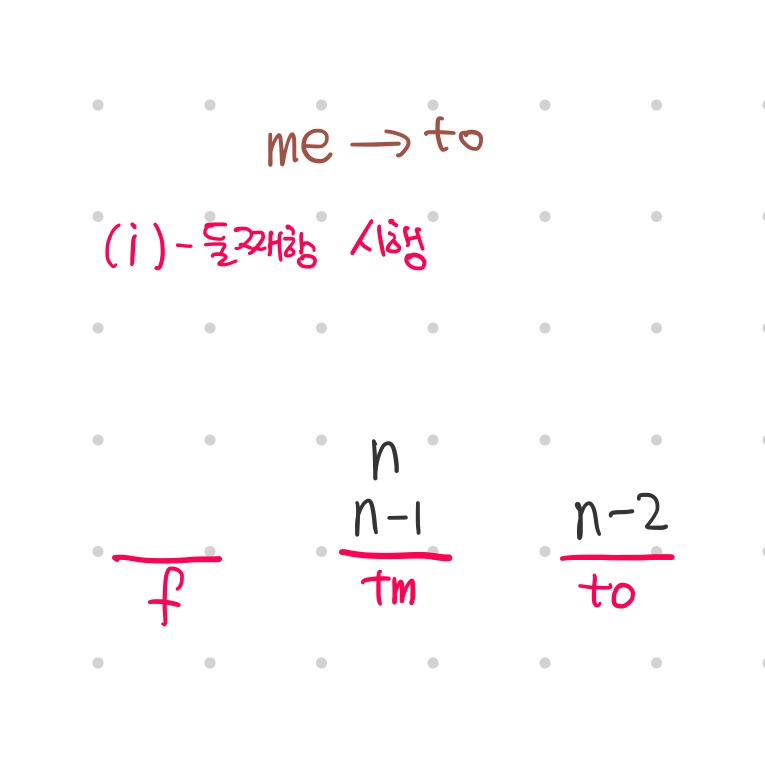 me → to
(i) - 둘째항 시행
n
n-1 n-2
f tm to